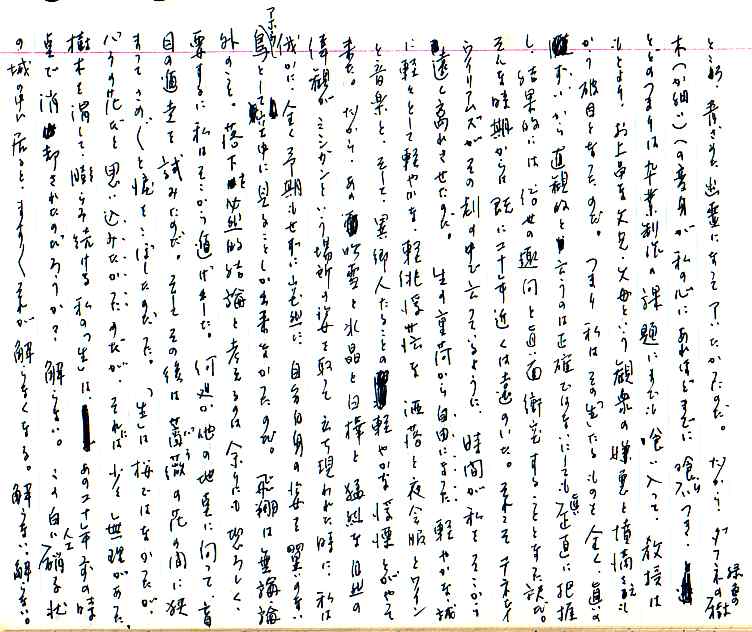 ところ、青ざめた幽霊になって了いたかったのだ。だから、ダフネの緑色の樹
木(か細い)への変身が私の心にあれほどまでに喰らいつき、
とどのつまりは卒業制作の課題にまでも喰い入って、教授は
もとより、お上品な父兄・父母という観衆の嫌悪と憤慨を
かう破目となったのだ。つまり私はその「生」たるものを全く、真の
直観的と言うのは正確ではないにしても真正直に把握
し、結果的には俗世の糞門と真面衝突することとなった訳だ。
そんな時期からは既に二十年近くは遠のいた。それこそテネシイ・
ウィリアムズがその劇の中で言っているように、時間が私をそこから
遠く離れさせたのだ。生の重荷から自由になった軽やかな城
に軽々として軽やかな、軽佻浮世伝な洒落と夜会服とワイン
と音楽と、そして異郷人たることの軽やかな憧憬とがやって
来た。だから、あの吹雪と氷晶と白樺と猛烈な自然の
偉観がミシガンという場所の姿を取って立ち現われた時に、私は
俄かに、全く予期もせずに忽然に、自分自身の姿を翼のない
鳥として空中に見ることしか出来なかったのだ。飛翔は無論論
外のこと。落下を必然的結論と考えるのは余りにも恐ろしく、
要するに私はそこから逃げ出した。何処か他の地点に向って、盲
目の遁走を試みたのだ。そしてその後は薔薇の花の園に狭
まってこの
バラの花だと思い込みたかったのだが、それは少々無理があった。
樹木を濡して膨らみ続ける私の「生」は、あの二十年前の時
点で消却されたのだろうか？解らない。この白い人硝子状
の城の中に居ると、ますますそれが解らなくなる。解らない解らない。